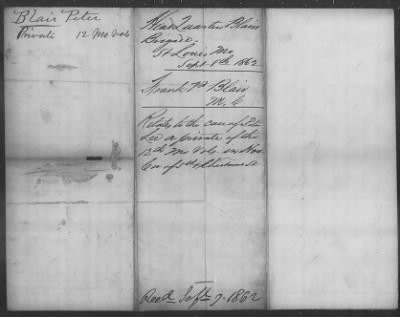 Blair Peter
Private 12 Mo Vols
Head Quarters Blairs
Brigade.
St Louis Mo,
Sept. 5th 1862
Frank P Blair
M. C
Relates to the case of Peter
Lee a private of the
12th Mo Vols. in Hos
Cor of 5th &
Recd Septr 9. 1862